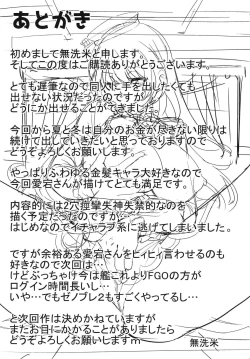 あとがき
初めまして無洗米と申します。
そしてこの度はご購読ありがとうございます。
とても遅筆なので同人に手を出したくても
出せない状況だったのですが
どうにか出せることができました。
今回から夏と冬は自分のお金が尽きない限りは
続けて出していきたいと思っておりますので
どうぞよろしくお願いします。
やっぱりふわゆる金髪キャラ大好きなので
今回愛宕さんが描けてとても満足です。
内容的には2穴痙攣失神失禁的なのを
描く予定だったのですが
はじめなのでイチャラブ系に逃げてしまいました。
ですが余裕ある愛宕さんをヒィヒィ言わせるのも
好きなので次回は…
けどぶっちゃけ今は艦これよりFGOの方が
ログイン時間長いし…
いや…でもゼノブレ2もすごくやってるし…
と次回作は決めかねていますが
またお目にかかることがありましたら
どうぞよろしくお願いしますm
無洗米